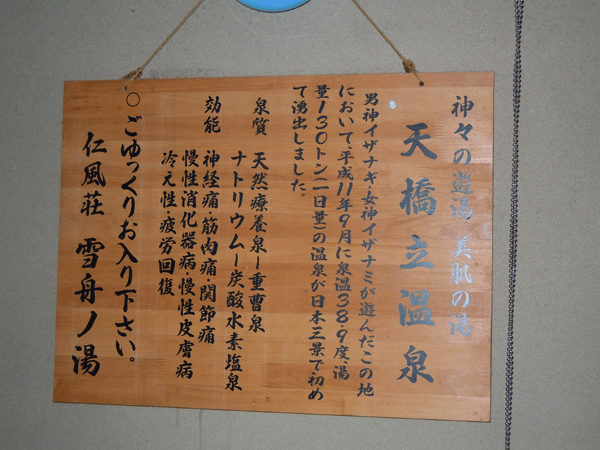 神々の遊湯 美肌の湯
天橋立温泉
男神イザナギ・女神イザナミが遊んだこの地
において平成11年9月に泉温38.9度、湯
量130トン(一日量)の温泉が日本三景で初め
て湧出しました。
泉質 天然療養泉ー重曹泉
ナトリウムー炭酸水素塩泉
効能 神経痛・筋肉痛・関節痛
慢性消化器病・慢性皮膚病
冷え性・疲労回復
○ごゆっくりお入り下さい。
仁風荘 雪舟ノ湯